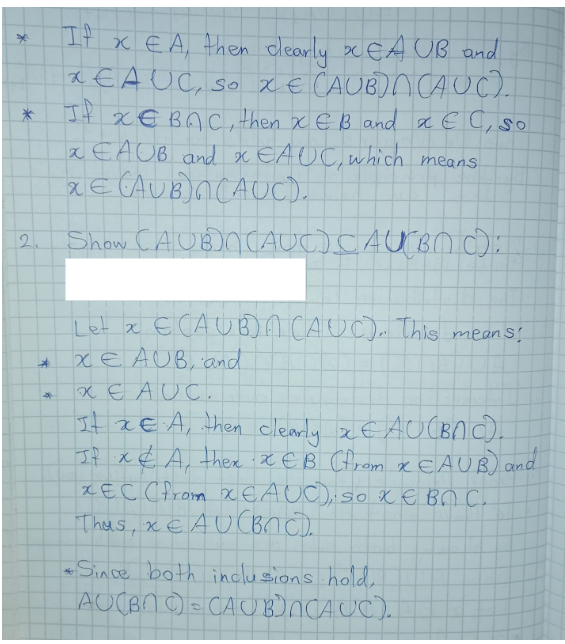 * If x ∈ A, then clearly x ∈ A ∪ B and
x ∈ A ∪ C, so x ∈ (A∪B)∩(A∪C).
* If x ∈ B∩C, then x ∈ B and x ∈ C, so
x ∈ A∪B and x ∈ A∪C, which means
x ∈ (A∪B)∩(A∪C).
2. Show (A∪B)∩(A∪C) ⊆ A∪(B∩C):
Let x ∈ (A∪B)∩(A∪C). This means:
* x ∈ A∪B, and
* x ∈ A∪C.
If x ∈ A, then clearly x ∈ A∪(B∩C).
If x ∉ A, then x ∈ B (from x ∈ A∪B) and
x ∈ C (from x ∈ A∪C), so x ∈ B∩C.
Thus, x ∈ A∪(B∩C).
* Since both inclusions hold,
A∪(B∩C) = (A∪B)∩(A∪C).